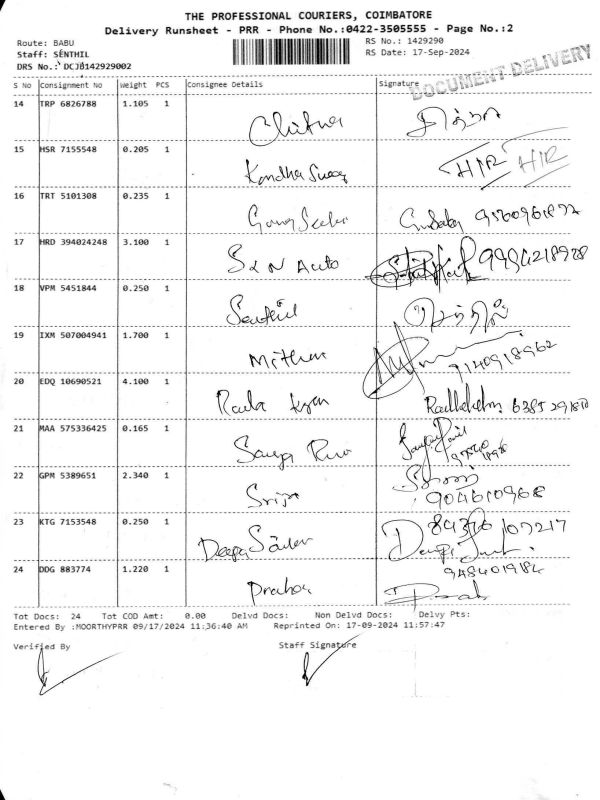 THE PROFESSIONAL COURIERS, COIMBATORE
Delivery Runsheet - PRR - Phone No.:0422-3505555 - Page No.:2
Route: BABU
RS No.: 1429290
Staff: SENTHIL
RS Date: 17-Sep-2024
DRS No.: DCJB142929002
DOCUMENT DELIVERY
S No Consignment No Weight PCS Consignee Details Signature
14 TRP 6826788 1.105 1
Chitra சித்ரா
15 HSR 7155548 0.205 1
HIR HIR
16 TRT 5101308 0.235 1
17 HRD 394024248 3.100 1
S&N Auto
18 VPM 5451844 0.250 1
Senthil செந்தில்
19 IXM 507004941 1.700 1
Mithun
9140918962
20 EDQ 10690521 4.100 1
21 MAA 575336425 0.165 1
22 GPM 5389651 2.340 1
9046610968
23 KTG 7153548 0.250 1
Deepa
24 DDG 883774 1.220 1
9484019184
Tot Docs: 24 Tot COD Amt: 0.00 Delvd Docs: Non Delvd Docs: Delvy Pts:
Entered By :MOORTHYPRR 09/17/2024 11:36:40 AM Reprinted On: 17-09-2024 11:57:47
Verified By Staff Signature